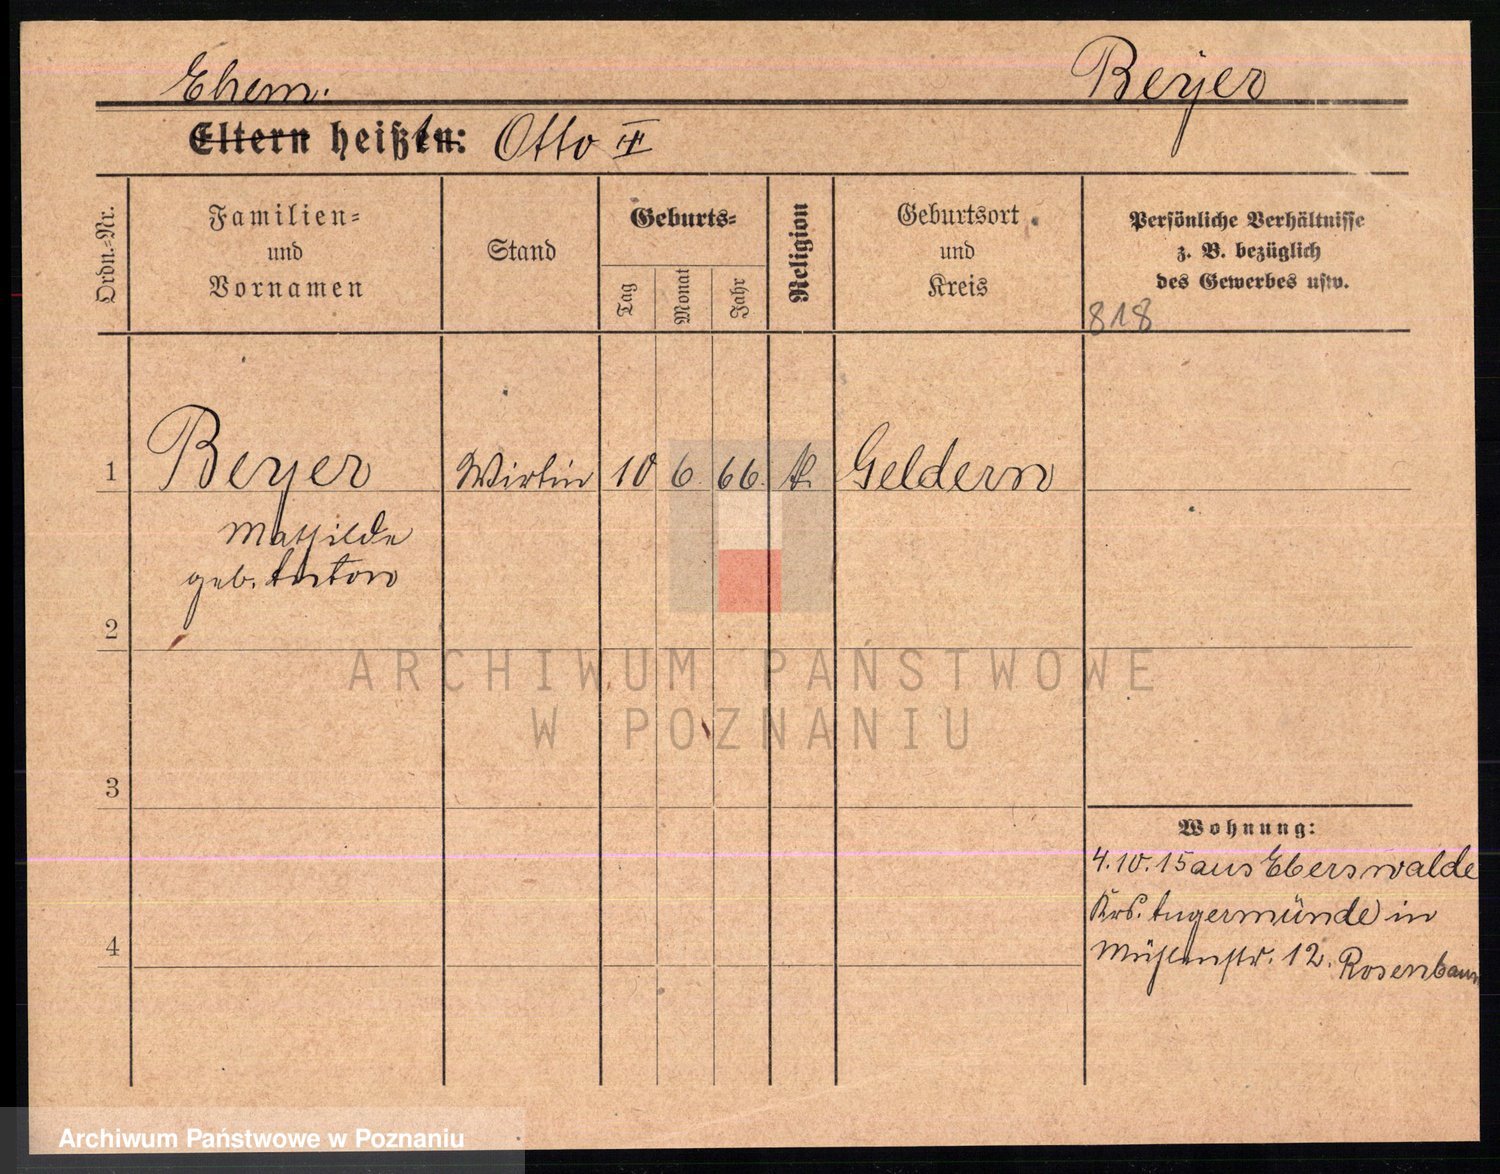 Ehem. Beyer
Eltern heißen: Otto II
Ordn.-Nr.
Familien-
und
Vornamen
Stand
Geburts-
Tag
Monat
Jahr
Religion
Geburtsort
und
Kreis
Persönliche Verhältnisse
z. B. bezüglich
des Gewerbes usw.
818
1 Beyer Wirtin 10 6. 66. Geldern
Mathilde
geb. Anton
2
3
4
Wohnung:
4.10.15 aus Eberswalde
Krs. Angermünde in
Mühlenstr. 12. Rosenbaum
ARCHIWUM PAŃSTWOWE
W POZNANIU
Archiwum Państwowe w Poznaniu